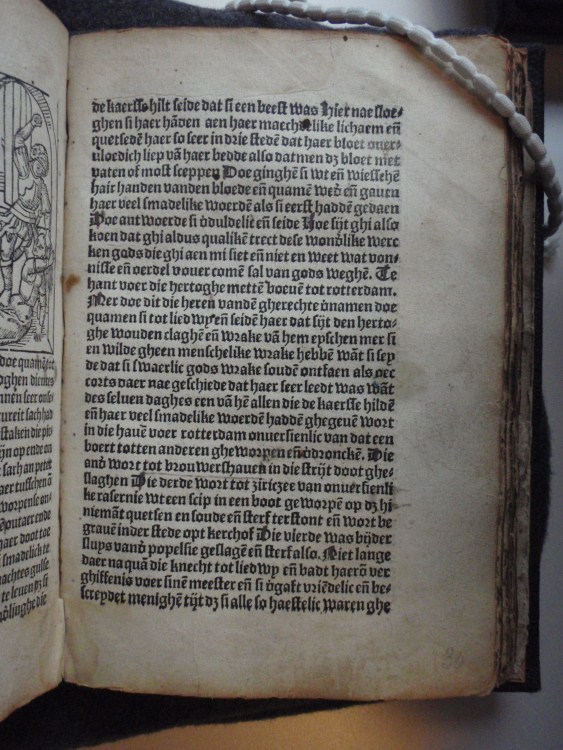 doe quamē tot
oghen dienres
nnen seer onsoe
tureit sach had
staken die pit-
ijn op ende on
e sach an petet
aer tusschen ā
worpense on-
mēoutaer ende
haer doot toe
i smadelick te
nachtes gulse
te leuen dȝ si
de kaersse hilt seide dat si een beest was Hier nae sloe-
ghen si haer hādēn aen haer maechdelike lichaem eñ
quetsedē haer so seer in drie stedē dat haer bloet ouer-
uloedich liep vā haer bedde also datmen dȝ bloet met
vaten of most sceppen Doe ginghē si wt eñ wiesschē
hair handen vanden bloede eñ quamē wed̄ eñ gauen
haer veel smadelike woerdē als si eerst haddē gedaen
Doe antwoerde si v̄duldelic eñ seide Hoe sijt ghi also
koen dat ghi aldus qualikē trect dese wond̄like werc
ken gods die ghi aen mi siet eñ niet en weet wat von-
nisse eñ oerdel vouer comē sal van gods weghē. Te
hant voer die hertoghe mettē voeuē tot rotterdam.
Mer doe dit die heren vandē gherechte v̄namen doe
quamen si tot liedwy eñ seidē haer dat sijt den herto-
ghe wouden claghē eñ wrake vā hem eyschen mer si
en wilde gheen menschelike wrake hebbē wāt si sey
de dat si swaerlic gods wrake soudē ontfaen als oec
corts daer nae geschiede dat haer seer leedt was wāt
des seluen daghes een vā hē allen die de kaersse hildē
eñ haer veel smadelike woerdē haddē ghegeuē wort
in die hauē voer rotterdam onuersienlic van dat een
boert totten anderen gheworpen eñ v̄dronckē. Die
and̄ wort tot brouwershauen in die strijt doot ghe-
slaghen Die derde wort tot ziriczee van onuersienli
ke rasernie wt een scip in een boot geworpē op dȝ hi
niemāt quetsen en soude eñ sterf terstont eñ wort be
grauē inder stede opt kerchof Die vierde was bijder
sluys vand̄ popelsie geslagē eñ sterf also. Niet lange
daer na quā die knecht tot liedwy eñ badt haerō ver
ghiffenis voer sinē meester eñ si v̄gaft vriēdelic eñ be-
screydet menighē tijt dȝ si alle so haestelic waren ghe